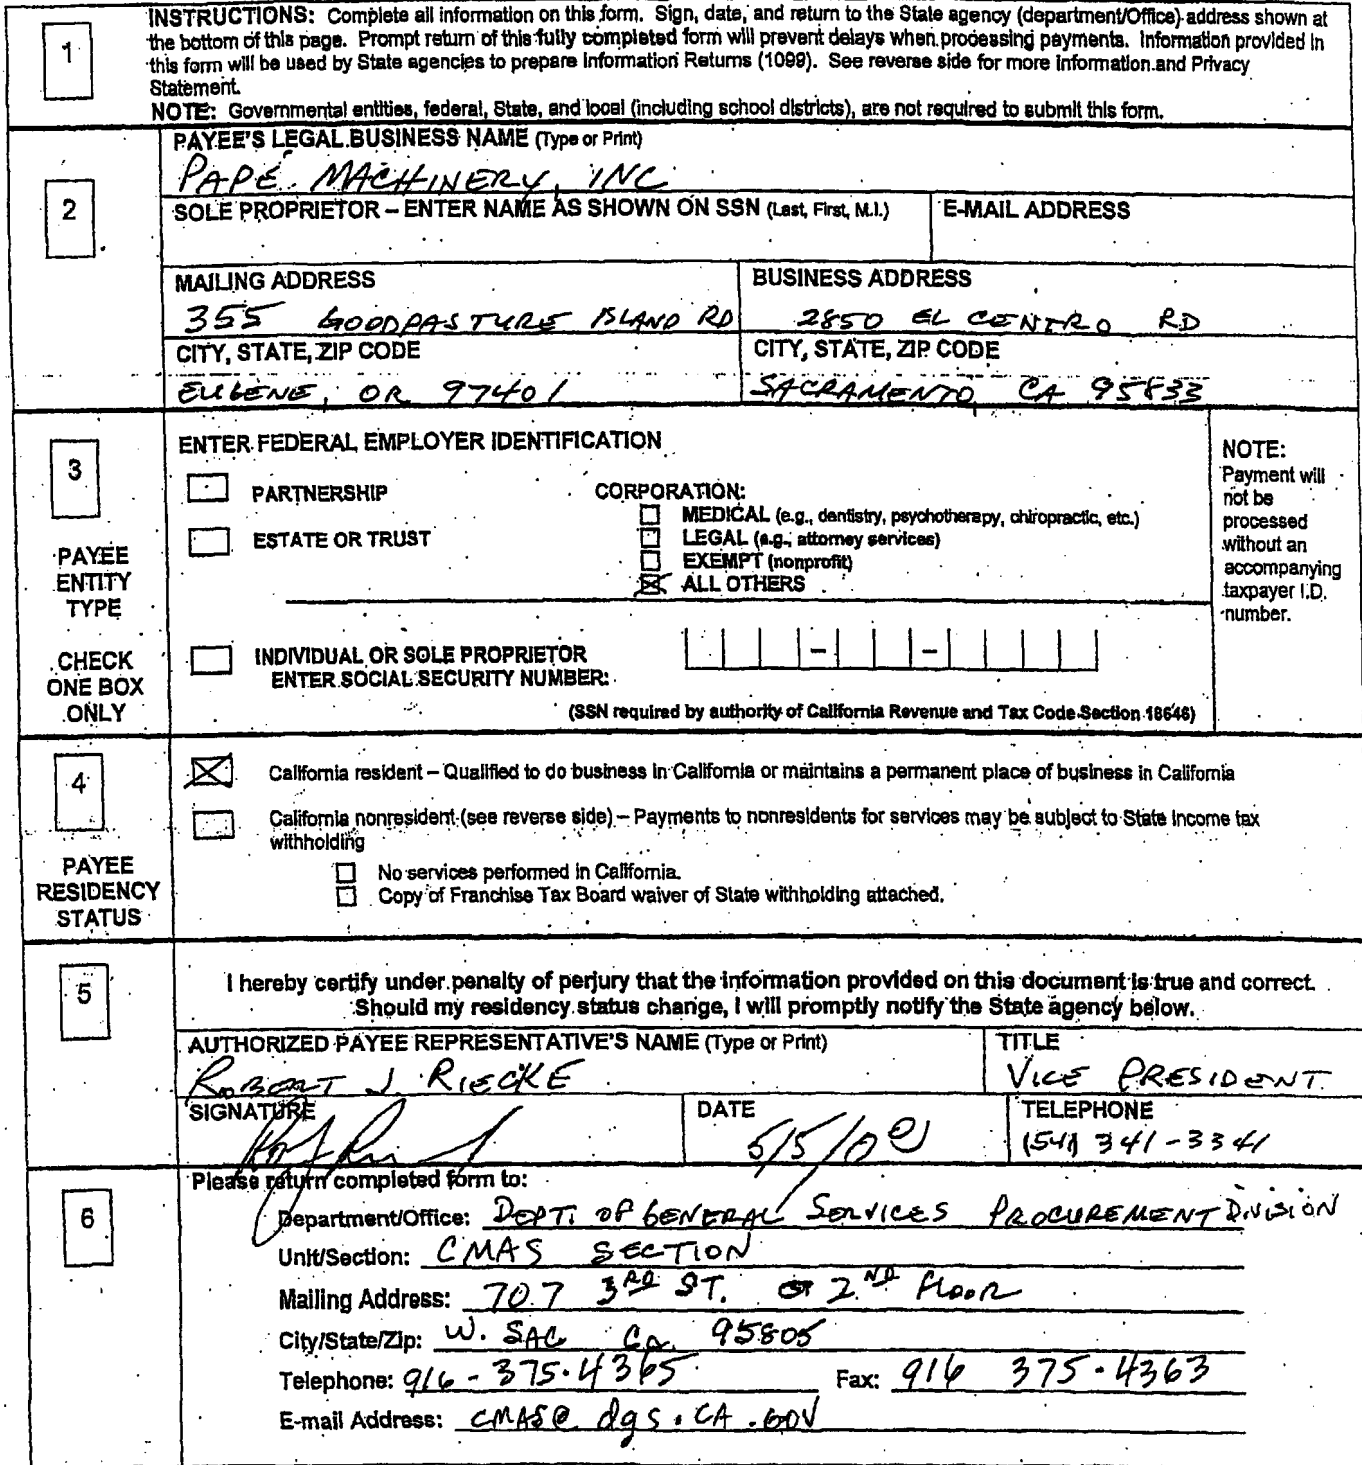 1
INSTRUCTIONS: Complete all information on this form. Sign, date, and return to the State agency (department/Office) address shown at
the bottom of this page. Prompt return of this fully completed form will prevent delays when processing payments. Information provided in
this form will be used by State agencies to prepare Information Returns (1099). See reverse side for more information and Privacy
Statement.
NOTE: Governmental entities, federal, State, and local (including school districts), are not required to submit this form.
2
PAYEE'S LEGAL BUSINESS NAME (Type or Print)
PAPÉ MACHINERY, INC
SOLE PROPRIETOR – ENTER NAME AS SHOWN ON SSN (Last, First, M.I.) E-MAIL ADDRESS
MAILING ADDRESS BUSINESS ADDRESS
355 GOODPASTURE ISLAND RD 2850 EL CENTRO RD
CITY, STATE, ZIP CODE CITY, STATE, ZIP CODE
EUGENE, OR 97401 SACRAMENTO, CA 95833
3
PAYEE
ENTITY
TYPE
CHECK
ONE BOX
ONLY
ENTER FEDERAL EMPLOYER IDENTIFICATION
PARTNERSHIP CORPORATION:
MEDICAL (e.g., dentistry, psychotherapy, chiropractic, etc.)
ESTATE OR TRUST LEGAL (e.g., attorney services)
EXEMPT (nonprofit)
ALL OTHERS
INDIVIDUAL OR SOLE PROPRIETOR
ENTER SOCIAL SECURITY NUMBER: – –
(SSN required by authority of California Revenue and Tax Code Section 18646)
NOTE:
Payment will
not be
processed
without an
accompanying
taxpayer I.D.
number.
4
PAYEE
RESIDENCY
STATUS
California resident – Qualified to do business in California or maintains a permanent place of business in California
California nonresident (see reverse side) – Payments to nonresidents for services may be subject to State income tax
withholding
No services performed in California.
Copy of Franchise Tax Board waiver of State withholding attached.
5
I hereby certify under penalty of perjury that the information provided on this document is true and correct.
Should my residency status change, I will promptly notify the State agency below.
AUTHORIZED PAYEE REPRESENTATIVE'S NAME (Type or Print) TITLE
ROBERT J RIECKE VICE PRESIDENT
SIGNATURE DATE TELEPHONE
5/5/09 (541) 341-3341
6
Please return completed form to:
Department/Office: DEPT. OF GENERAL SERVICES PROCUREMENT DIVISION
Unit/Section: CMAS SECTION
Mailing Address: 707 3RD ST. 2ND FLOOR
City/State/Zip: W. SAC CA. 95805
Telephone: 916-375-4365 Fax: 916 375-4363
E-mail Address: CMAS@dgs.CA.GOV